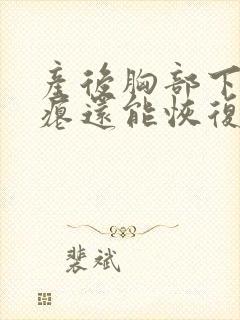 產後胸部下
瘪還能恢復
裴斌